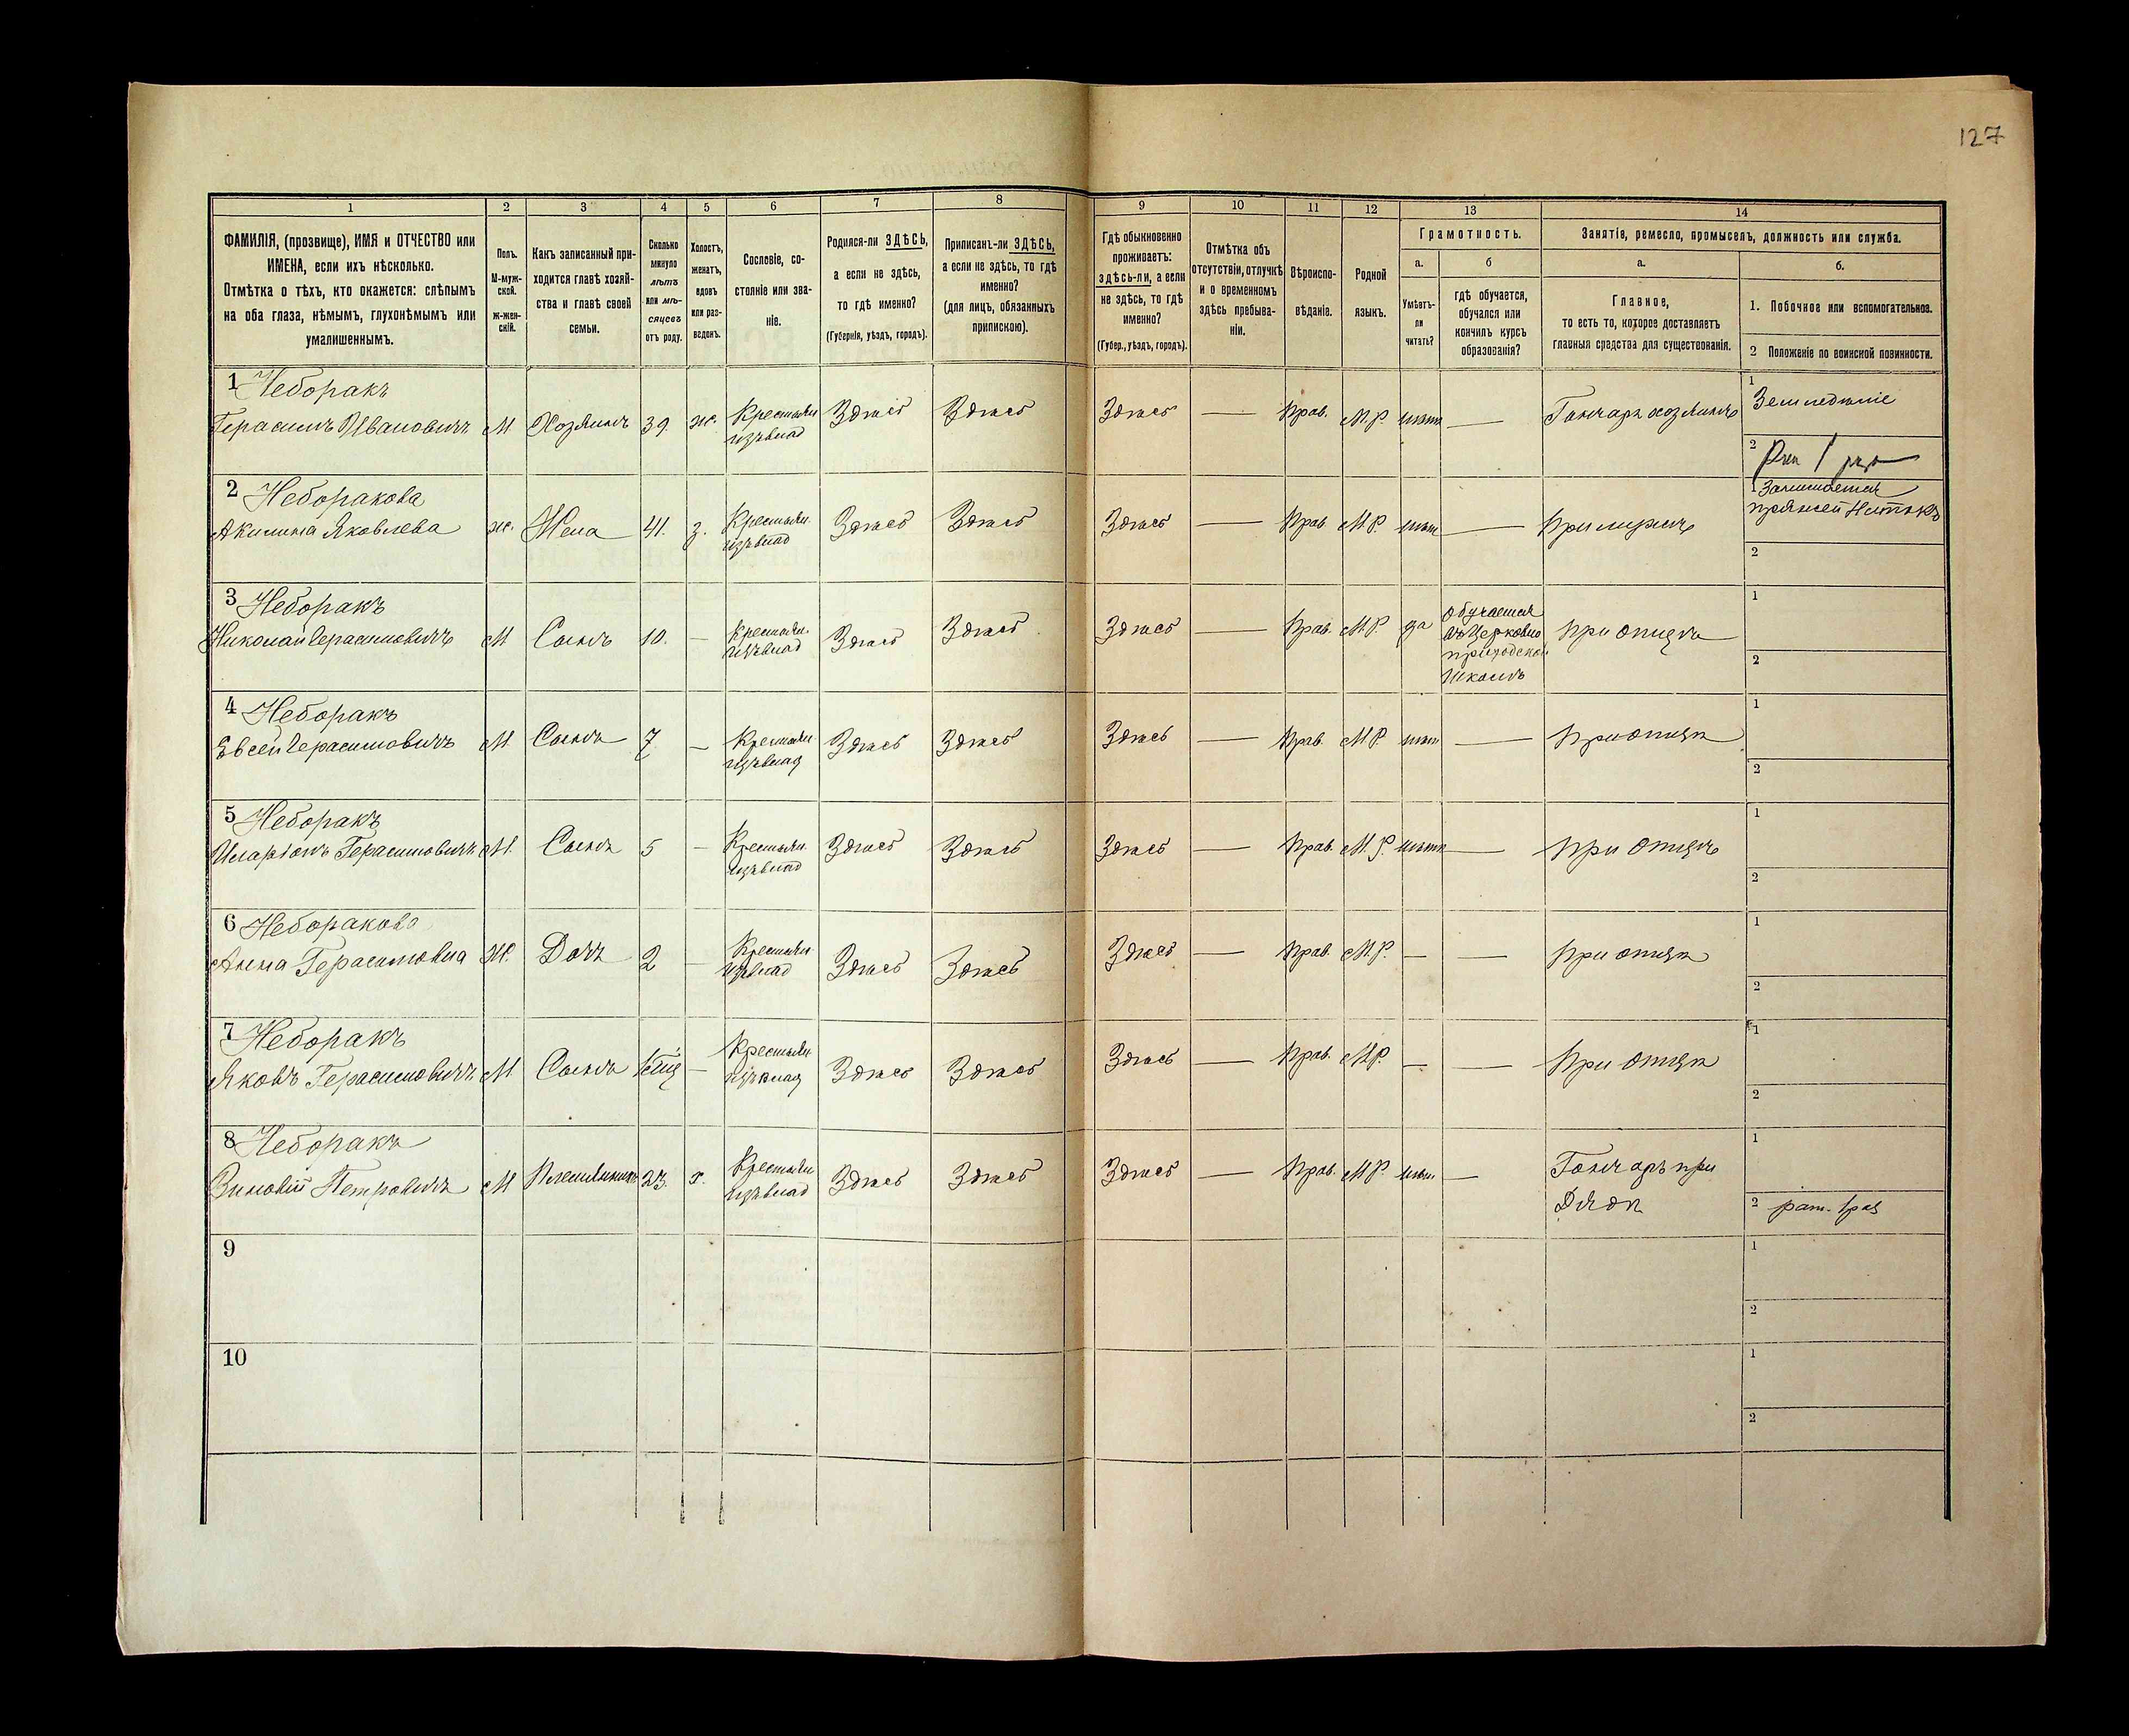 127
1 2 3 4 5 6 7 8 9 10 11 12 13 14
ФАМИЛІЯ, (прозвище), ИМЯ и ОТЧЕСТВО или
ИМЕНА, если ихъ нѣсколько.
Отмѣтка о тѣхъ, кто окажется: слѣпымъ
на оба глаза, нѣмымъ, глухонѣмымъ или
умалишеннымъ.
Полъ.
М-муж-
ской.
ж-жен-
скій.
Какъ записанный при-
ходится главѣ хозяй-
ства и главѣ своей
семьи.
Сколько
минуло
лѣтъ
или мѣ-
сяцевъ
отъ роду.
Холостъ,
женатъ,
вдовъ
или раз-
веденъ.
Сословіе, со-
стояніе или зва-
ніе.
Родился-ли ЗДѢСЬ,
а если не здѣсь,
то гдѣ именно?
(Губернія, уѣздъ, городъ).
Приписанъ-ли ЗДѢСЬ,
а если не здѣсь, то гдѣ
именно?
(для лицъ, обязанныхъ
припискою).
Гдѣ обыкновенно
проживаетъ:
здѣсь-ли, а если
не здѣсь, то гдѣ
именно?
(Губер., уѣздъ, городъ).
Отмѣтка объ
отсутствіи, отлучкѣ
и о временномъ
здѣсь пребыва-
ніи.
Вѣроиспо-
вѣданіе.
Родной
языкъ.
Грамотность.
а.
Умѣетъ-
ли
читать?
б
гдѣ обучается,
обучался или
кончилъ курсъ
образованія?
Занятіе, ремесло, промыселъ, должность или служба.
а.
Главное,
то есть то, которое доставляетъ
главныя средства для существованія.
б.
1. Побочное или вспомогательное.
2 Положеніе по воинской повинности.
1 Неборакъ
Герасимъ Ивановичъ М. Хозяинъ 39. ж. Крестьян. Здѣсь Здѣсь Здѣсь — Прав. М.Р. нѣтъ — Гончаръ хозяинъ
изъ влад
1 Земледѣліе
2
2 Неборакова
Акилина Яковлева ж. Жена 41. з. Крестьян. Здѣсь Здѣсь Здѣсь — Прав М.Р. нѣтъ — При мужѣ
изъ влад
1 Занимается
пряжей Нитокъ
2
3 Неборакъ
Николай Герасимовичъ М Сынъ 10. — Крестьян. Здѣсь Здѣсь Здѣсь — Прав. М.Р. да
изъ влад
Обучается
въ Церковно
приходской
Школѣ
при отцѣ
1
2
4 Неборакъ
Евсей Герасимовичъ М. Сынъ 7 — Крестьян Здѣсь Здѣсь Здѣсь — Прав. М.Р. нѣт — При отцѣ
изъ влад
1
2
5 Неборакъ
Иларіонъ Герасимовичъ М. Сынъ 5 — Крестьян. Здѣсь Здѣсь Здѣсь — Прав. М.Р. нѣтъ — При Отцѣ
изъ влад
1
2
6 Неборакова
Анна Герасимовна Ж. Дочь 2 — Крестьян Здѣсь Здѣсь Здѣсь — Прав. М.Р. — — При отцѣ
изъ влад
1
2
7 Неборакъ
Яковъ Герасимовичъ М Сынъ — Крестьян Здѣсь Здѣсь Здѣсь — Прав. М.Р. — — При отцѣ
изъ влад
1
2
8 Неборакъ
Зиновій Петровичъ М Племянникъ 23. х. Крестьян Здѣсь Здѣсь Здѣсь — Прав. М.Р. нѣт — Гончаръ при
изъ влад
Дядѣ
1
2 рат. 1 раз
9
1
2
10
1
2